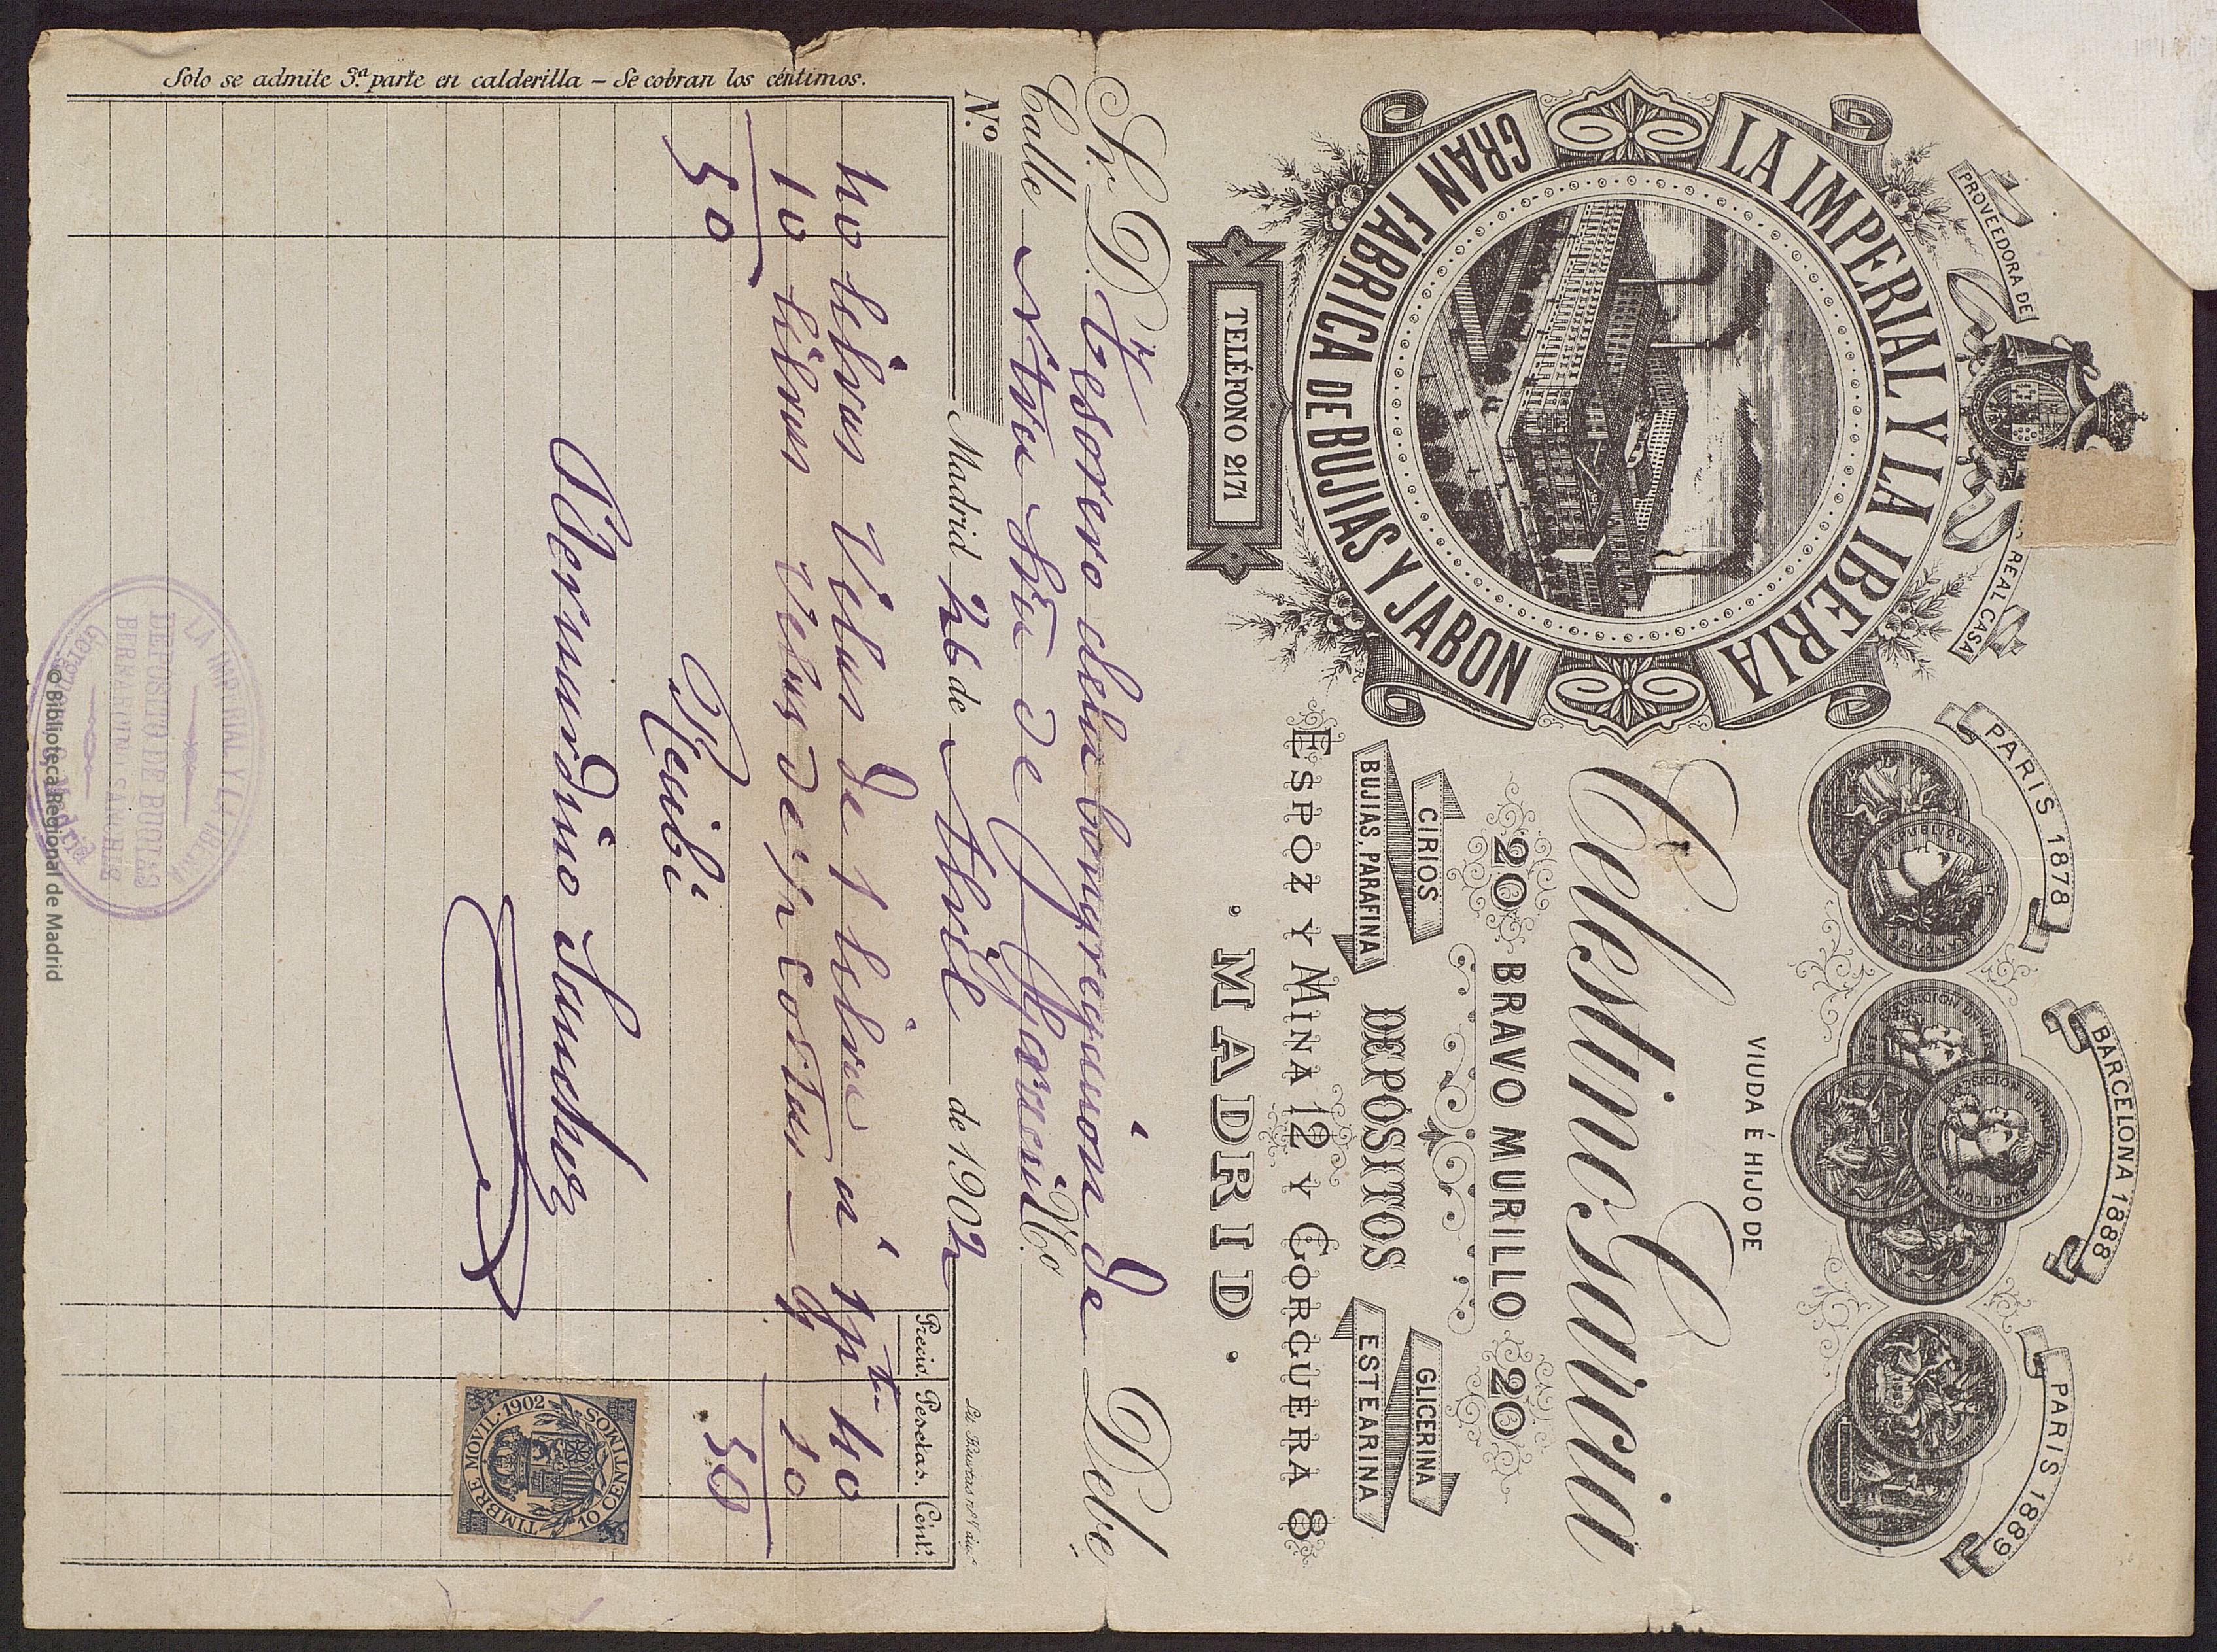 PROVEEDORA DE
REAL CASA
LA IMPERIAL Y LA IBERIA
GRAN FÁBRICA DE BUJIAS Y JABON
TELÉFONO 2171
PARIS 1878
BARCELONA 1888
PARIS 1889
VIUDA É HIJO DE
Celestino Garcia
20 BRAVO MURILLO 20
CIRIOS
BUJIAS, PARAFINA
DEPÓSITOS
GLICERINA
ESTEARINA
ESPOZ Y MINA 12 Y GORGUERA 8
· MADRID ·
Sr. D. Tesorero dela Congregacion de Debe
Calle Ntra Sra de
Nº
Madrid 26 de Abril de 1902
Precio. Pesetas. Cént.
40 libras Velas de 1 libra á 1 pta 40
10 libras Velas de 10
50 50
Recibi
Bernardino Sanchez
TIMBRE MOVIL·1902
10 CENTIMOS
LA IMPERIAL Y LA IBERIA
DEPOSITO DE BUGIAS
BERNARDINO SANCHEZ
Gorguera 8 Madrid
Solo se admite 3ª parte en calderilla – Se cobran los céntimos.
© Biblioteca Regional de Madrid